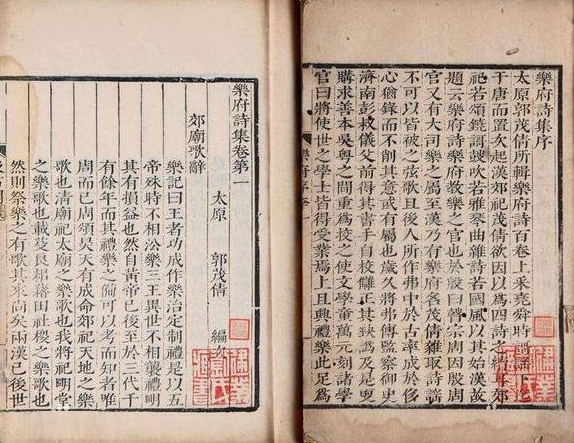 樂府詩集序
太原郭茂倩所輯樂府詩百卷上采堯舜時謌謠下迄
于唐而置次起漢郊祀茂倩欲因以爲四詩之續耳郊
祀若頌鐃謌鼓吹若雅琴曲雜詩若國風以其始漢故
題云樂府詩樂府教樂之官也於殷曰瞽宗周因殷周
官又有大司樂之屬至漢乃有樂府名茂倩雜取詩謠
不可以皆被之弦歌且後人所作弗中於古率成於
心猶錄而不削其意或有屬也歲久將弗傳監察御史
濟南彭叔儀父前得其書手自校讎正其缺譌及是更
購求善本吳粵之間重爲校之使文學童萬元刻諸學
官曰將使世之學士皆得受業焉上且興禮樂此足爲
樂府詩集卷第一
太原 郭茂倩 編次
郊廟歌辭
樂記曰王者功成作樂治定制禮是以五
帝殊時不相沿樂三王異世不相襲禮明
其有損益也然自黃帝已後至於三代千
有餘年而其禮樂之備可以考而知者唯
周而已周頌昊天有成命郊祀天地之樂
歌也清廟祀太廟之樂歌也我將祀明堂
之樂歌也載芟良耜藉田社稷之樂歌也
然則祭樂之有歌其來尚矣兩漢已後世